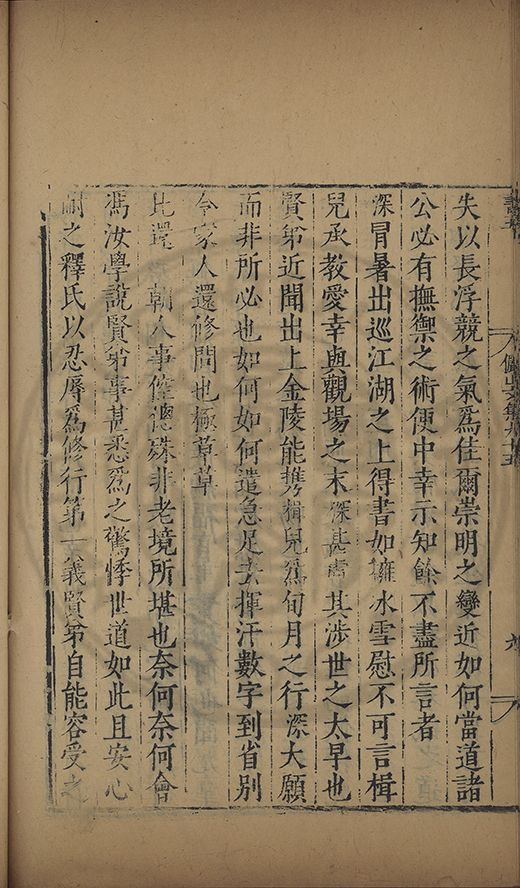 失以長浮競之氣爲佳爾崇明之變近如何當道諸
公必有撫禦之術便中幸示知餘不盡所言者
深冒暑出巡江湖之上得書如擁冰雪慰不可言楫
兒承教愛幸與觀場之末深甚虞其涉世之太早也
賢弟近聞出上金陵能携楫兒爲旬月之行深大願
而非所必也如何如何遣急足去揮汗數字到省别
令家人還修問也極草草
比還 朝人事倥偬殊非老境所堪也奈何奈何會
馮汝學說賢弟事甚悉爲之驚悸世道如此且安心
耐之釋氏以忍辱爲修行第一義賢弟自能容受之